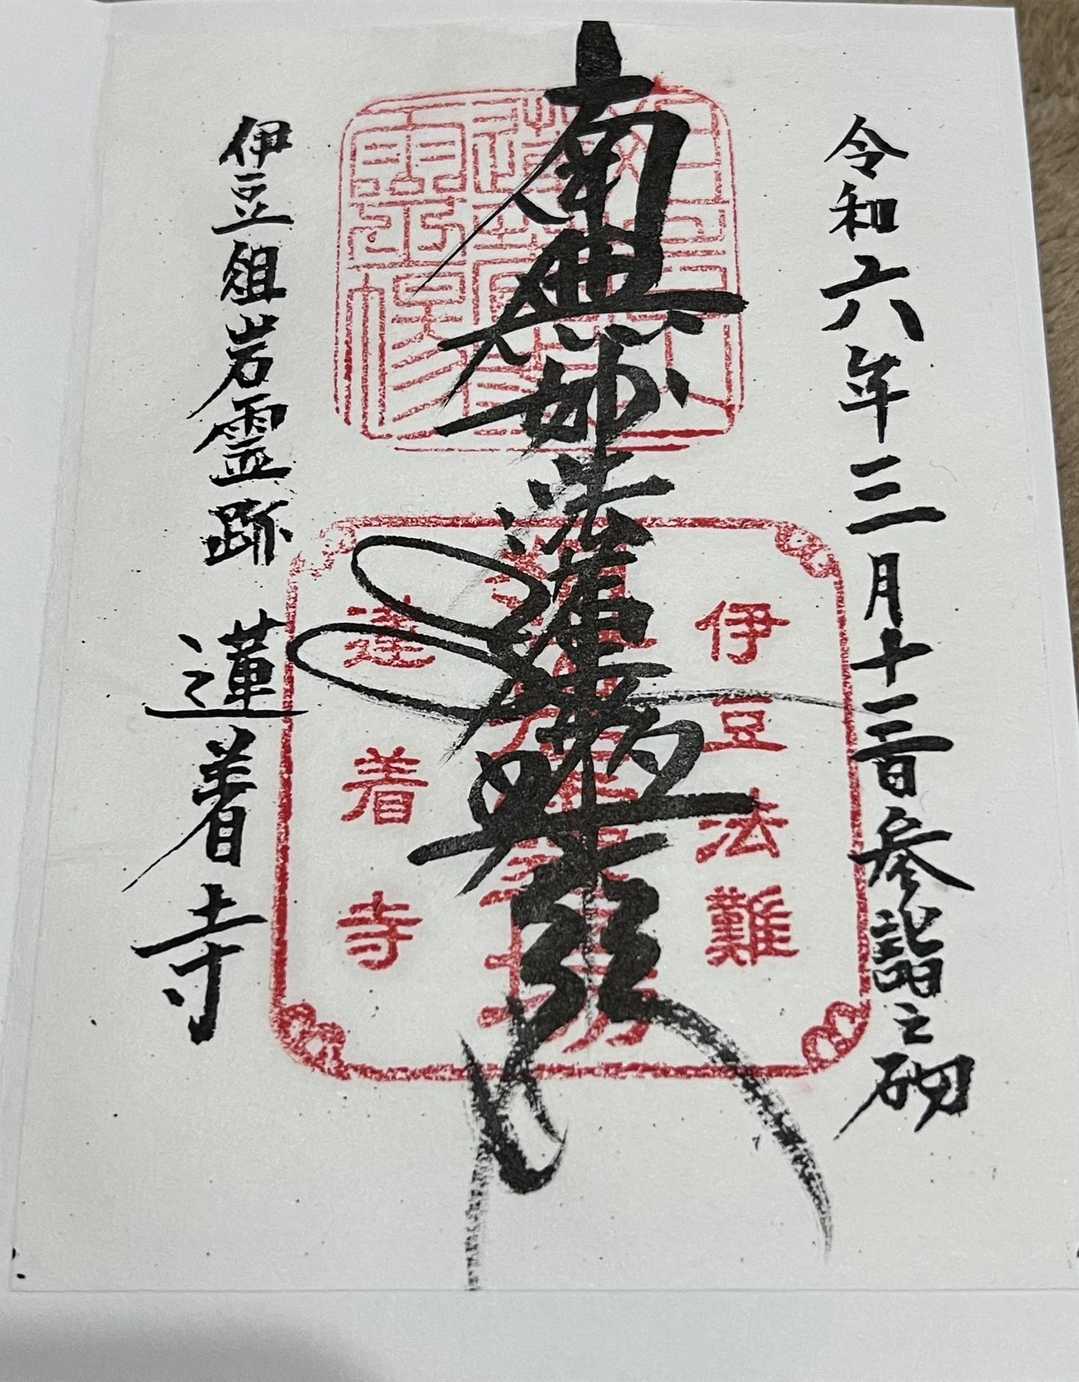 令和六年三月十三日参詣之砌
南無妙法蓮華経
伊豆法難
蓮着寺
伊豆俎岩霊跡 蓮着寺